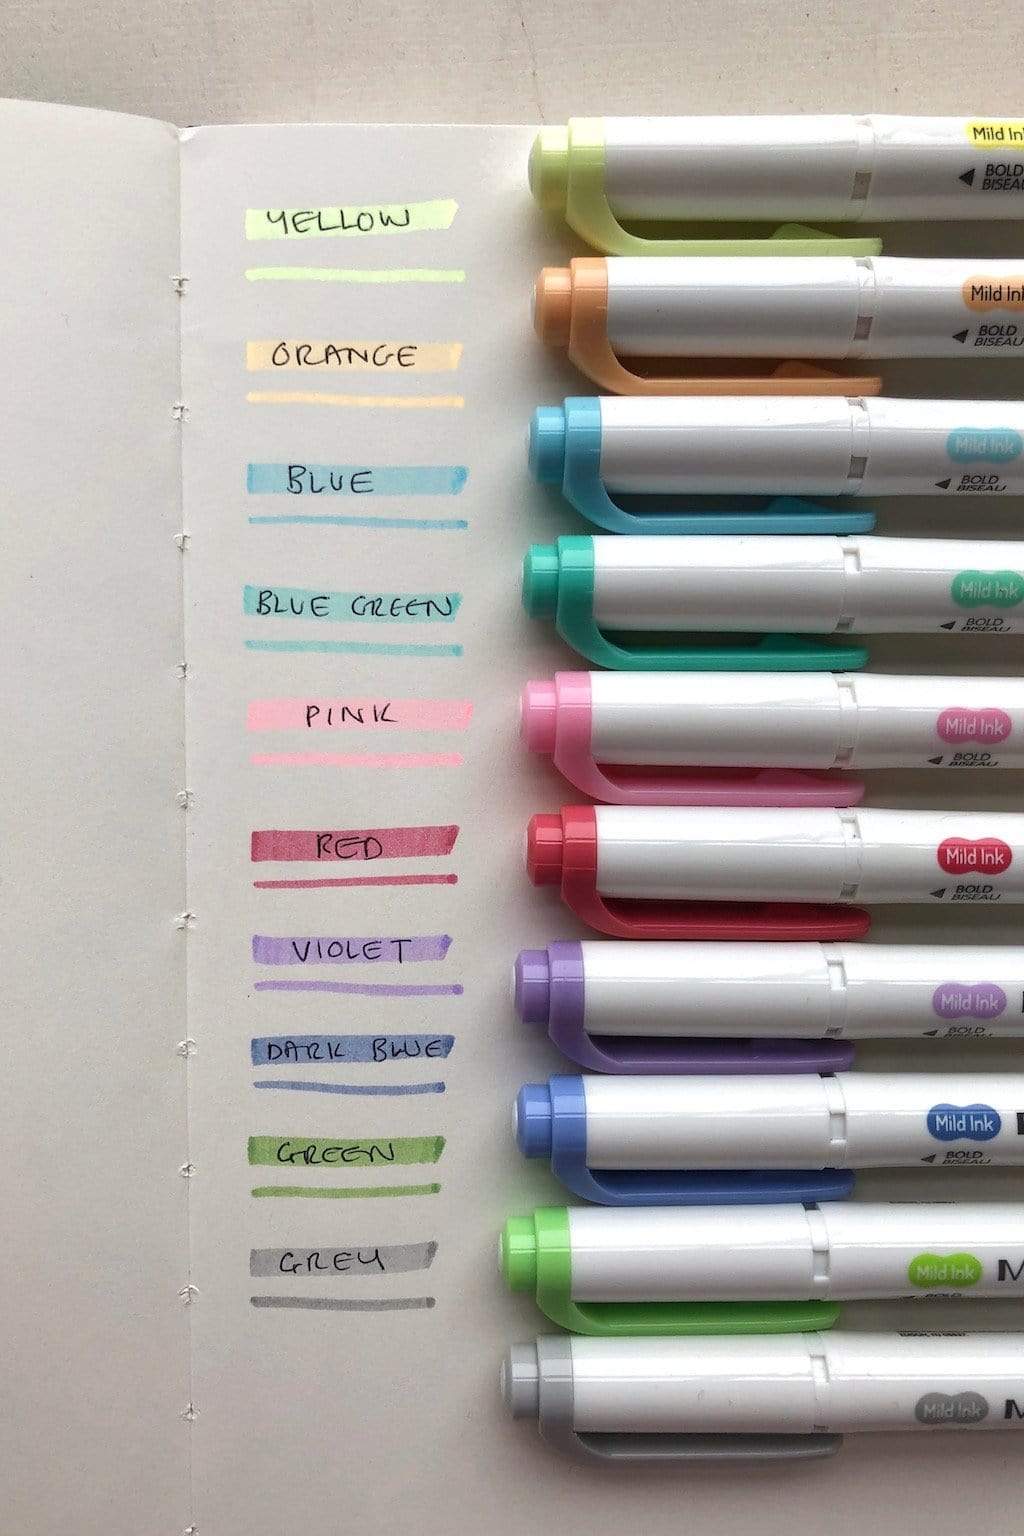 YELLOW
ORANGE
BLUE
BLUE GREEN
PINK
RED
VIOLET
DARK BLUE
GREEN
GREY
Mild In
BOLD
BISEAU
Mild Ink
BOLD
BISEAU
Mild Ink
BOLD
BISEAU
Mild Ink
BOLD
BISEAU
Mild Ink
BOLD
BISEAU
Mild Ink
BOLD
BISEAU
Mild Ink
BOLD
Mild Ink
BOLD
BISEAU
Mild Ink M
Mild Ink M